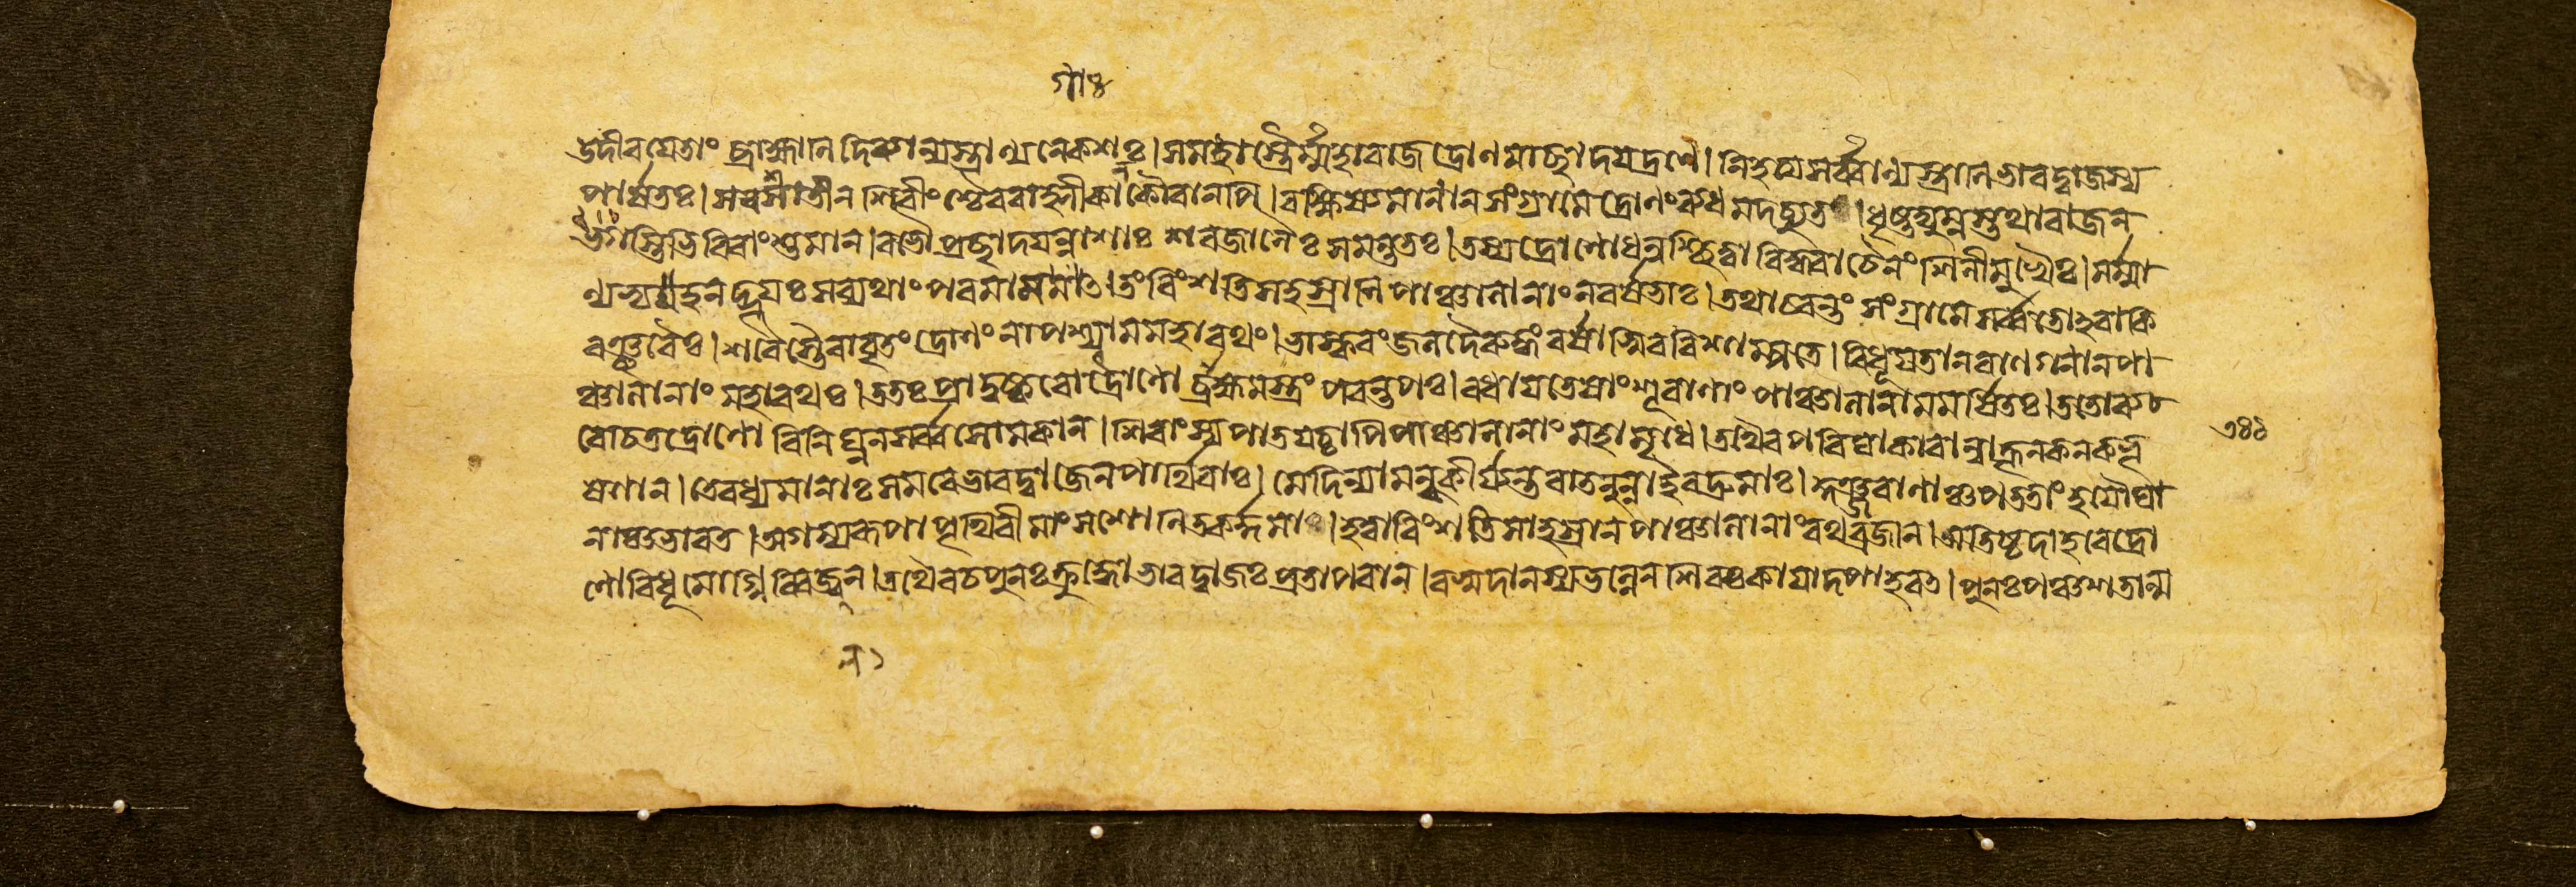 গাঃ
উদীরয়েতাং ব্রাহ্মানি দিব্যান্যস্ত্রাণ্যনেকশঃ।স মহাস্ত্রৈর্ম্মহারাজ দ্রোণমাচ্ছাদয়দ্রণে।নিহত্য সর্ব্বাণ্যস্ত্রানি ভারদ্বাজস্য
পার্ষতঃ।স বসাতীন শিবীংশ্চৈব বাহ্লীকান কৌরবানপি।রক্ষিষ্যমানান সংগ্রামে দ্রোণং ব্যধমদচ্যুত।ধৃষ্টদ্যুম্নস্তথা রাজন
গভস্তিভিরিবাংশুমান।বভৌ প্রচ্ছাদয়ন্নাশাঃ শরজালৈঃ সমন্ততঃ।তস্য দ্রোণো ধনুশ্ছিত্বা বিদ্ধ্বা চৈনং শিলীমুখৈঃ।মর্ম্মা
ণ্যভ্যহনদ্ভূয়ঃ স ব্যথাং পরমামগাৎ।তং বিংশতিসহস্রাণি পাঞ্চালানাং নরর্ষভাঃ।তথা চরন্তং সংগ্রামে সর্ব্বতোহবাকি
রঞ্ছরৈঃ।শরৈস্তৈরাবৃতং দ্রোণং নাপশ্যাম মহারথং।ভাস্করং জলদৈরুদ্ধং বর্ষাস্বিব বিশাম্পতে।বিধূয় তান বাণগণান পা
ঞ্চালানাং মহারথঃ।ততঃ প্রাদুশ্চক্রে দ্রোণো ব্রাহ্মমস্ত্রং পরন্তপঃ।বধায় তেষাং শূরাণাং পাঞ্চালানামমর্ষিতঃ।ততো ব্য
রোচত দ্রোণো বিনিঘ্নন সর্ব্বসোমকান।শিরাংস্যপাতয়চ্চাপি পাঞ্চালানাং মহামৃধে।তথৈব পরিঘাকারান বাহূন কনকভূ
ষণান।তে বধ্যমানাঃ সমরে ভারদ্বাজেন পার্থিবাঃ।মেদিন্যামন্বকীর্য্যন্ত বাতনুন্না ইব দ্রুমাঃ।কুঞ্জরাণাঞ্চ পততাং হয়ৌঘা
নাঞ্চ ভারত।অগম্যরূপা পৃথিবী মাংসশোনিতকর্দ্দমা।হত্বা বিংশতিসাহস্রান পাঞ্চালানাং রথব্রজান।অতিষ্ঠদাহবে দ্রো
ণো বিধূমোগ্নিরিব জ্বলন।তথৈব চ পুনঃ ক্রুদ্ধো ভারদ্বাজঃ প্রতাপবান।বসুদানস্য ভল্লেন শিরঃ কায়াদপাহরত।পুনঃ পঞ্চশতান্ম
৩৪১